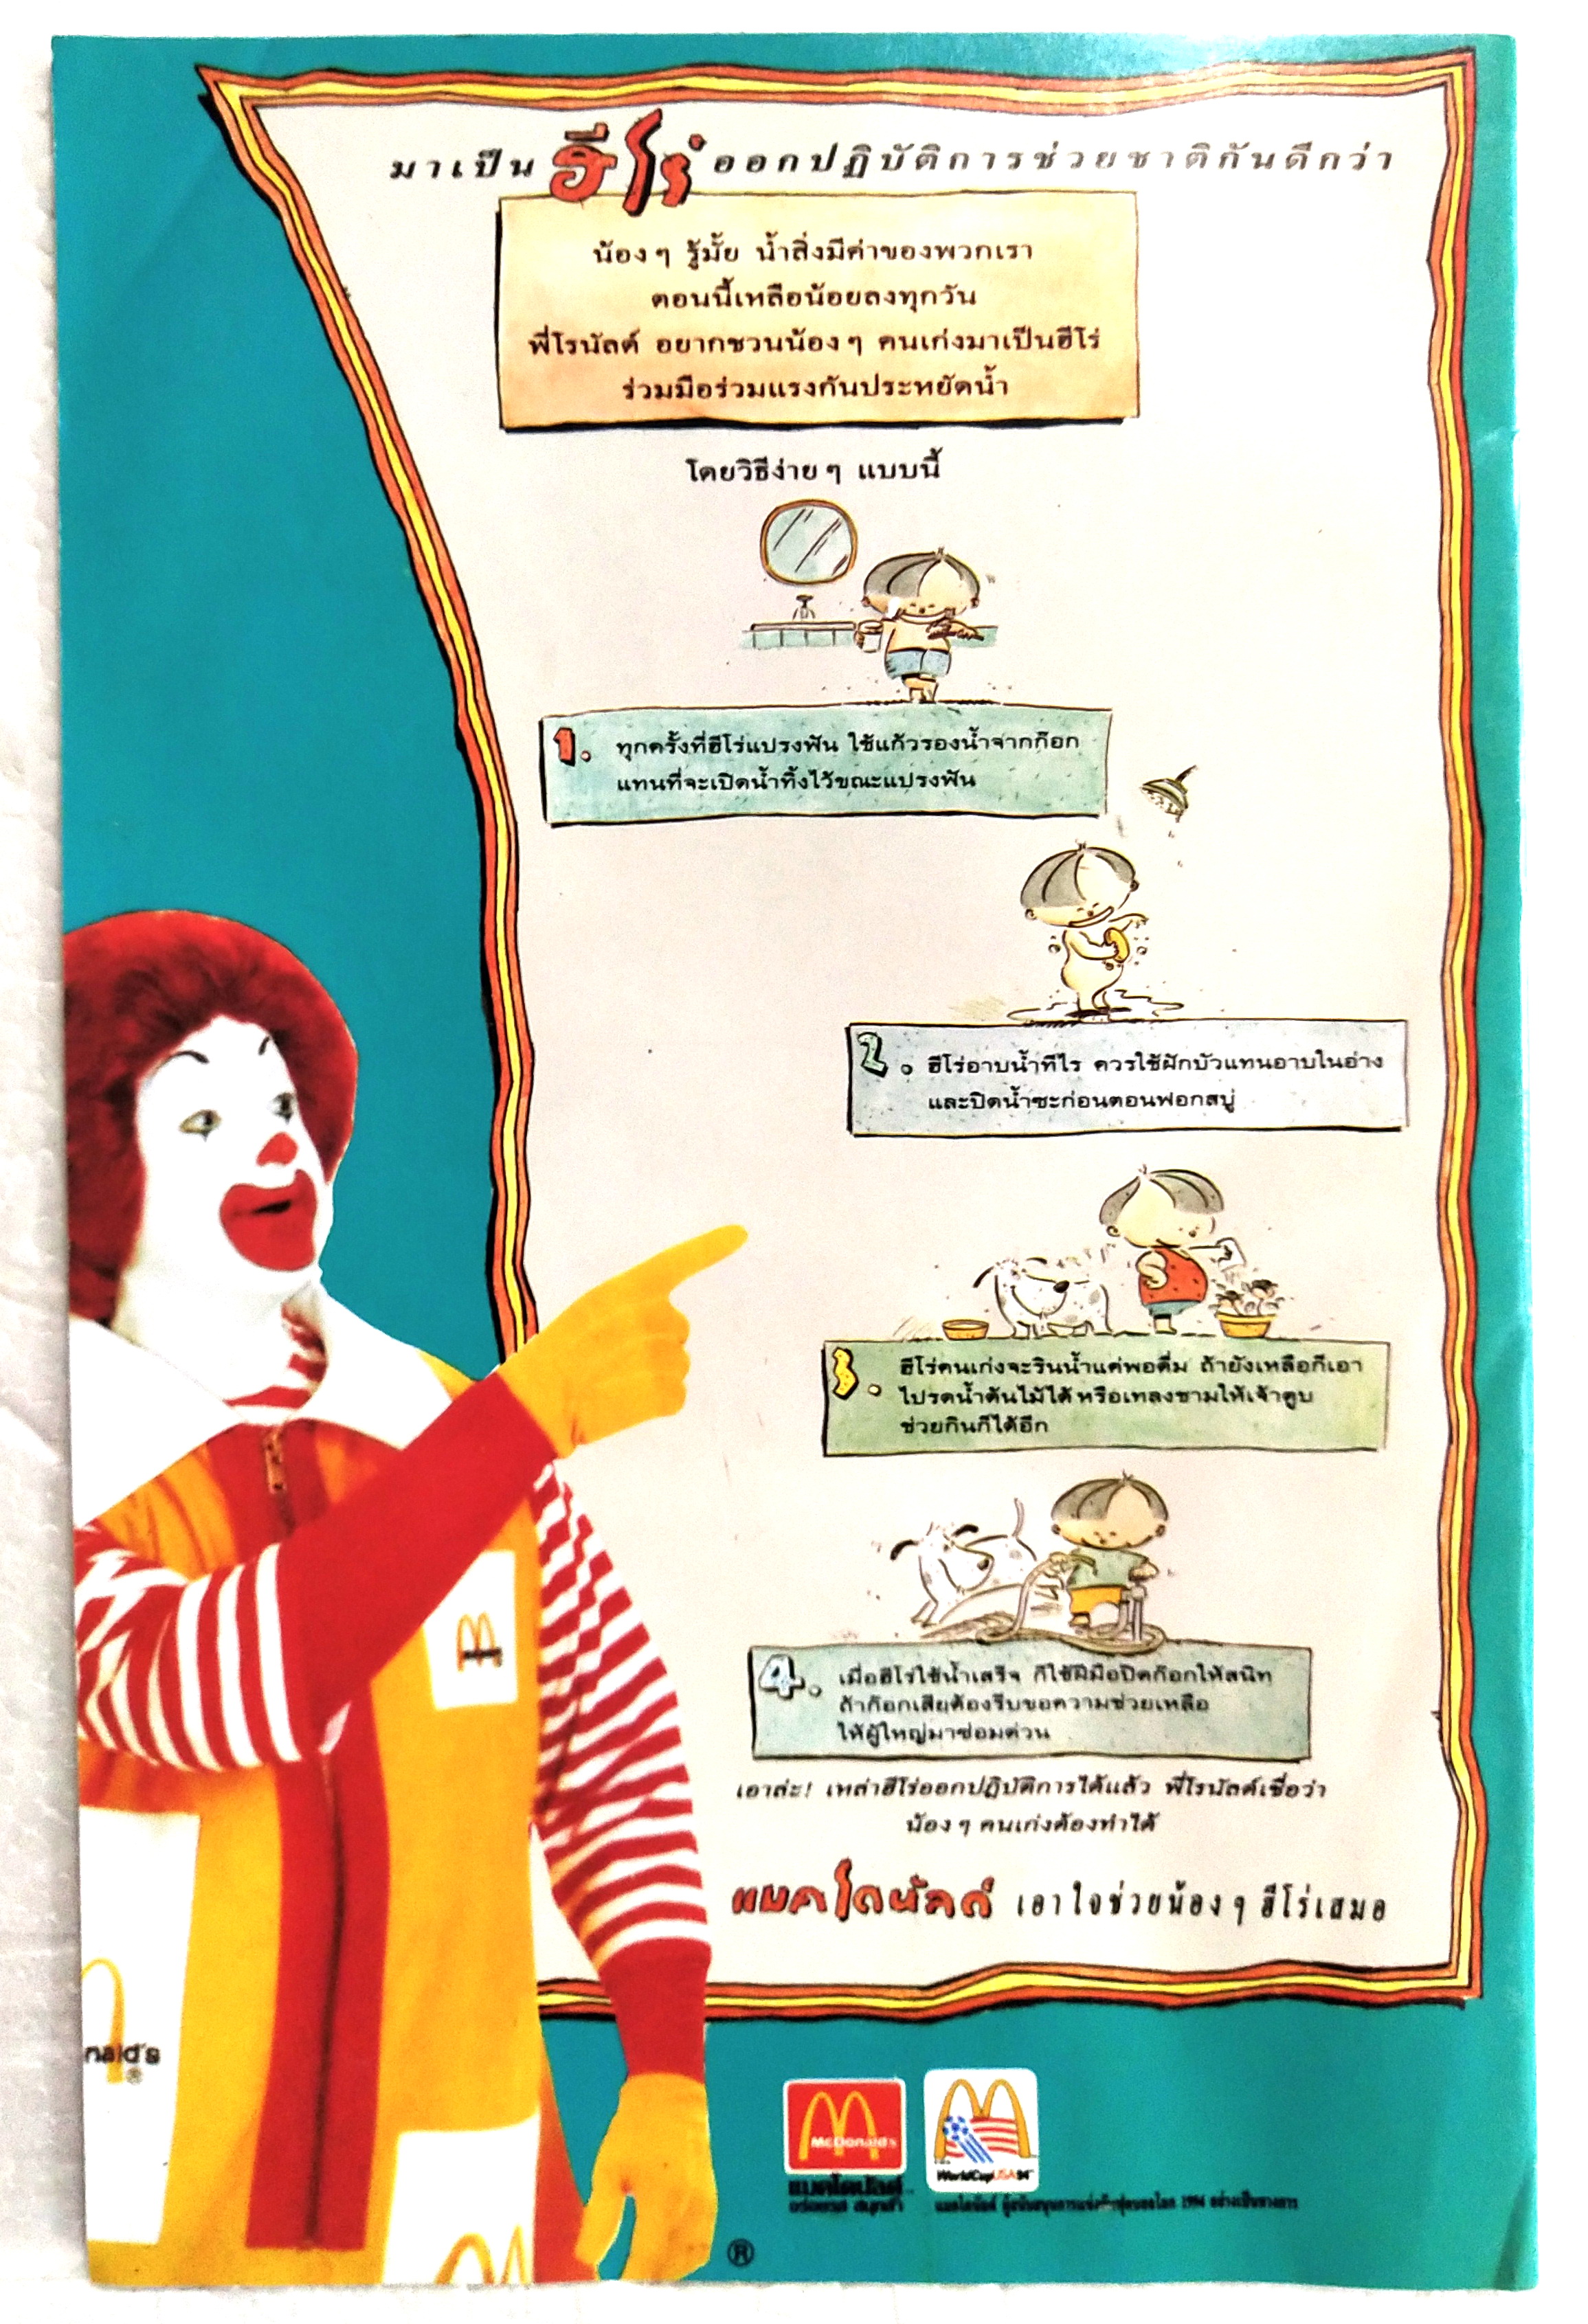 มาเป็น ฮีโร่ ออกปฏิบัติการช่วยชาติกันดีกว่า
น้องๆ รู้มั้ย น้ำสิ่งมีค่าของพวกเรา
ตอนนี้เหลือน้อยลงทุกวัน
พี่โรนัลด์ อยากชวนน้องๆ คนเก่งมาเป็นฮีโร่
ร่วมมือร่วมแรงกันประหยัดน้ำ
โดยวิธีง่ายๆ แบบนี้
1. ทุกครั้งที่ฮีโร่แปรงฟัน ใช้แก้วรองน้ำจากก๊อก
แทนที่จะเปิดน้ำทิ้งไว้ขณะแปรงฟัน
2. ฮีโร่อาบน้ำทีไร ควรใช้ฝักบัวแทนอาบในอ่าง
และปิดน้ำซะก่อนตอนฟอกสบู่
3. ฮีโร่คนเก่งจะรินน้ำแค่พอดื่ม ถ้ายังเหลือก็เอา
ไปรดน้ำต้นไม้ได้ หรือเทลงชามให้เจ้าตูบ
ช่วยกินก็ได้อีก
4. เมื่อฮีโร่ใช้น้ำเสร็จ ก็ใช้ฝีมือปิดก๊อกให้สนิท
ถ้าก๊อกเสียต้องรีบขอความช่วยเหลือ
ให้ผู้ใหญ่มาซ่อมด่วน
เอาล่ะ! เหล่าฮีโร่ออกปฏิบัติการได้แล้ว พี่โรนัลด์เชื่อว่า
น้องๆ คนเก่งต้องทำได้
แมคโดนัลด์ เอาใจช่วยน้องๆ ฮีโร่เสมอ
nald's
®
McDonald's
แมคโดนัลด์
WorldCupUSA94
แมคโดนัลด์ ผู้สนับสนุนการแข่งขันฟุตบอลโลก 1994 อย่างเป็นทางการ
®